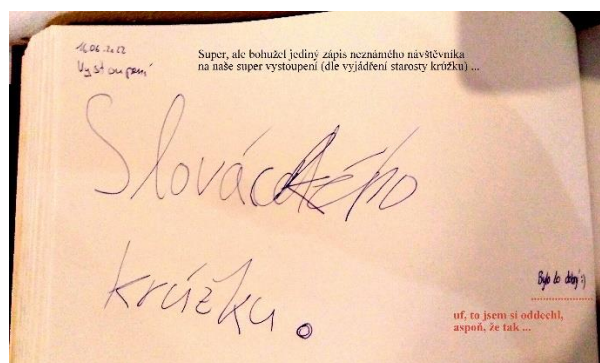 16.06.2022
Vystoupení
Super, ale bohužel jediný zápis neznámého návštěvníka
na naše super vystoupení (dle vyjádření starosty krúžku) ...
Slováckého
krúžku.
Bylo to dobrý :)
uf, to jsem si oddechl,
aspoň, že tak ...